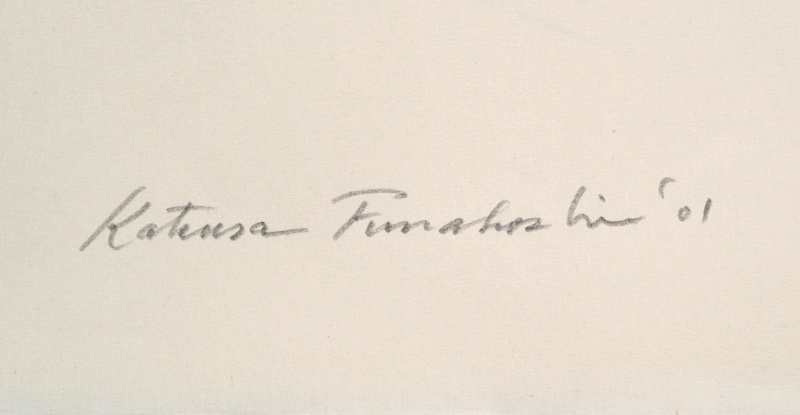 Katsura Funakoshi '01